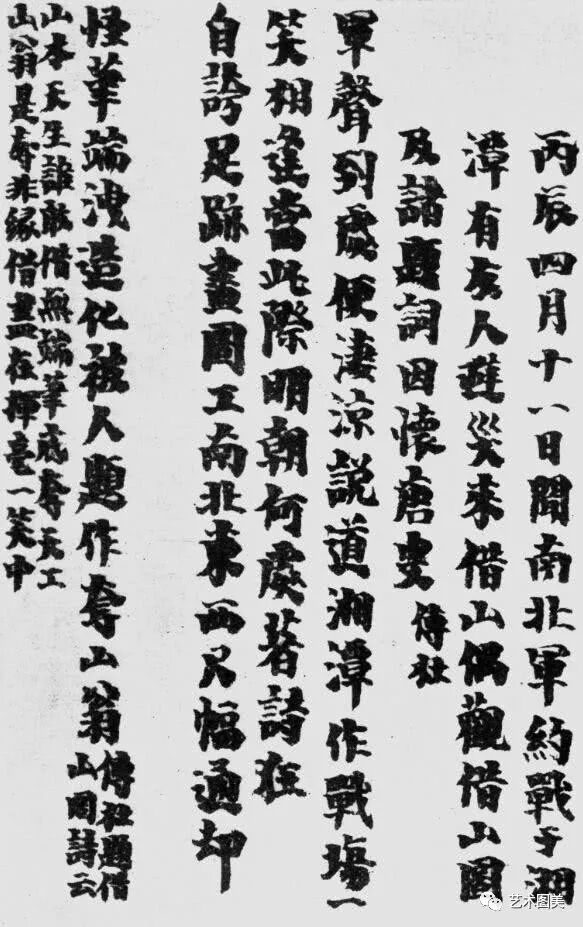 丙辰四月十八日聞南北軍約戰于湘
潭有友人避災來借山偶觀借山圖
及諸題詞因懷唐叟傳杜
軍聲到處便淒涼說道湘潭作戰場一
笑相逢當此際明朝何處著詩狂
自誇足跡畫圖工南北東西尺幅通却
怪筆端洩造化被人題作奪山翁傳杜題借
山圖詩云
山本天生誰敢借無端筆底奪天工
山翁是奪非緣借盡在揮毫一笑中
艺术图美